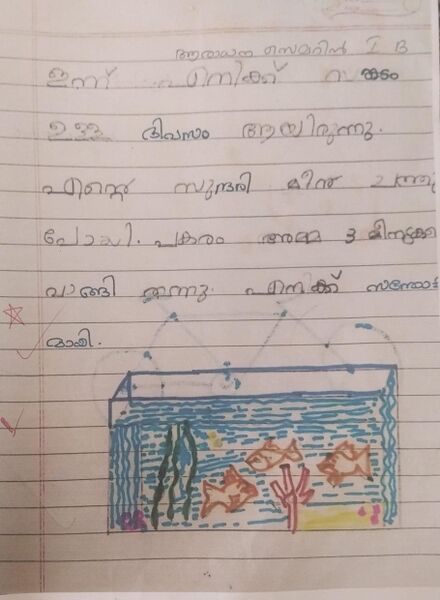 ആരാധന സെബറിൻ I B
ഇന്ന് എനിക്ക് സങ്കടം
ഉള്ള ദിവസം ആയിരുന്നു.
എന്റെ സുന്ദരി മീൻ ചത്തു
പോയി. പകരം അമ്മ 3 മീനുകളെ
വാങ്ങി തന്നു. എനിക്ക് സന്തോഷ
മായി.